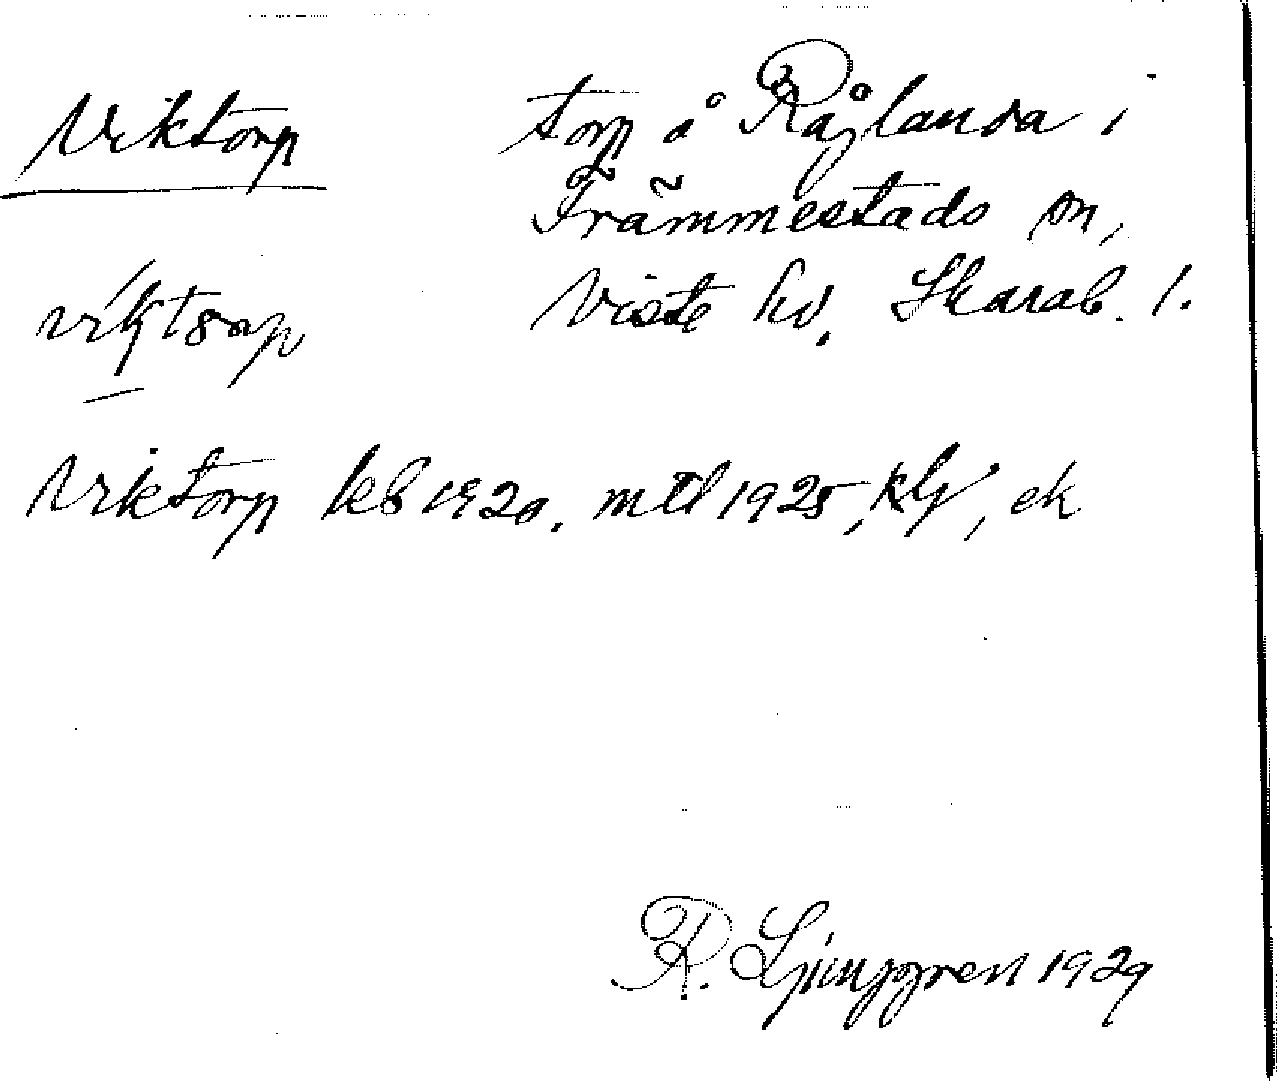 Viktorp torp å Råglanda i
Främmestads sn,
Viste hd. Skarab. l.
Viktorp kb 1920. mtl 1925, kly, ek
R. Ljunggren 1929